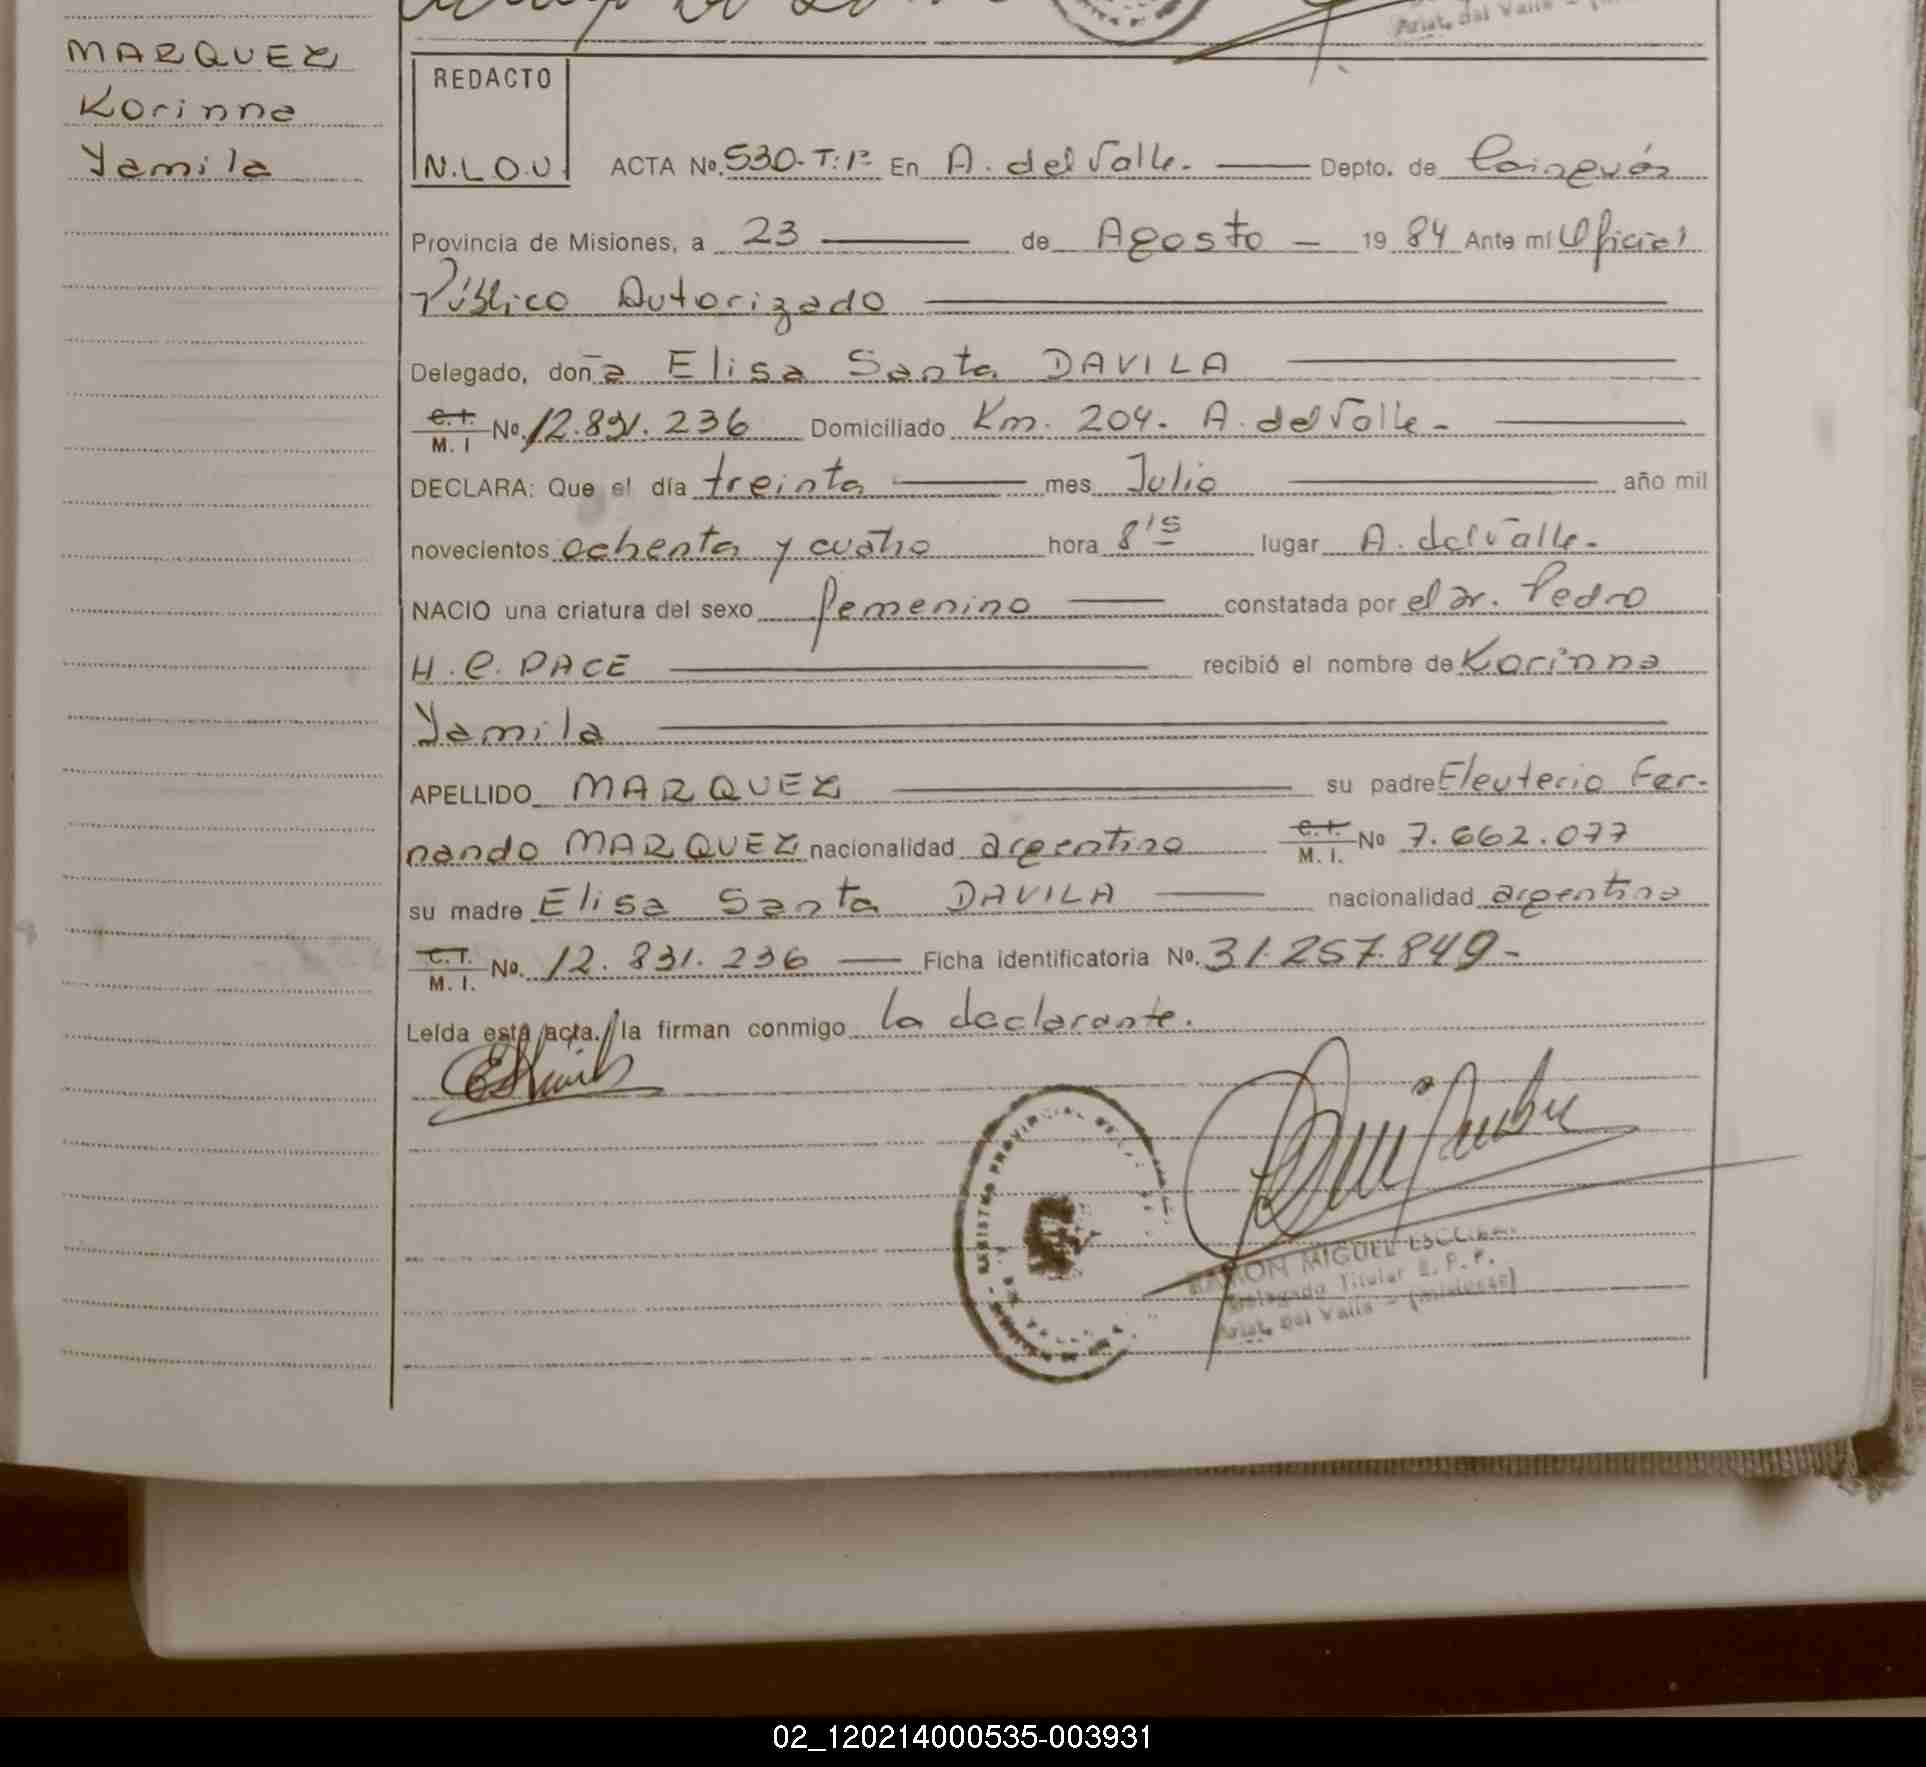 MARQUEZ
Korinna
Yamila
Arist. del Valle
REDACTO
N.L.O.U.
ACTA No. 530-T:1º En A. del Valle. Depto. de Cainguás
Provincia de Misiones, a 23 de Agosto 1984 Ante mi Oficial
Público Autorizado
Delegado, doña Elisa Santa DAVILA
C.I. M. I No. 12.831.236 Domiciliado Km. 204. A. del Valle.
DECLARA: Que el día treinta mes Julio año mil
novecientos ochenta y cuatro hora 8,15 lugar A. del Valle.
NACIO una criatura del sexo femenino constatada por el Dr. Pedro
H. C. PACE recibió el nombre de Korinna
Yamila
APELLIDO MARQUEZ su padre Eleuterio Fer-
nando MARQUEZ nacionalidad argentino C.I. M. I. No 7.662.077
su madre Elisa Santa DAVILA nacionalidad argentina
C.I. M. I. No. 12.831.236 Ficha identificatoria No. 31.257.849-
Leída esta acta, la firman conmigo la declarante.
REGISTRO PROVINCIAL
RAMON MIGUEL
Delegado Titular R. P. P.
Arist. Del Valle - (Misiones)
02_120214000535-003931